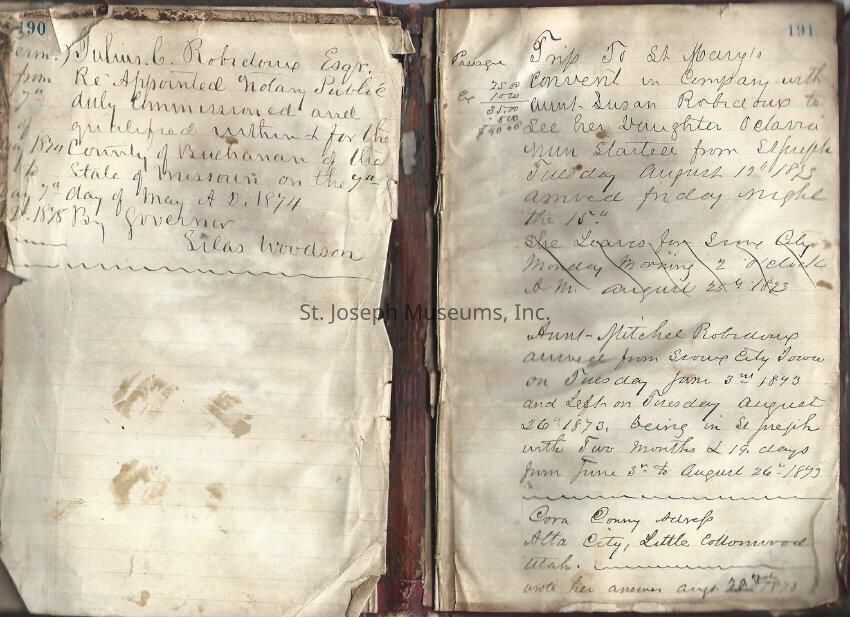 190
Term. of Julius. C. Robidoux Esqr.
from Re-Appointed Notary Public
7th duly Commissioned and
of qualified within & for the
1874 County of Buchanan of the
to State of Missouri on the 7th
7th day of May A D. 1874
1878 By Governor
Silas Woodson
191
Passage Trip To St Mary's
25.00 Convent in Company with
Ex 10.00 Aunt Susan Robidoux to
35.00 See her Daughter Octavia
5.00 nun Started from St Joseph
$40.00
Tuesday August 12th 1873
arrived friday night
the 15th
She Leaves for Sioux City
Monday Morning 2 O'clock
A M. August 25th 1873
St. Joseph Museums, Inc.
Aunt Mitchel Robidoux
arrived from Sioux City Iowa
on Tuesday June 3rd 1873
and Left on Tuesday August
26th 1873. being in St Joseph
with Two Months & 19. days
from June 3rd to August 26th 1873
Cora Conny Adress
Alta City, Little Cottonwood
Utah.
wrote her answer augt 1873